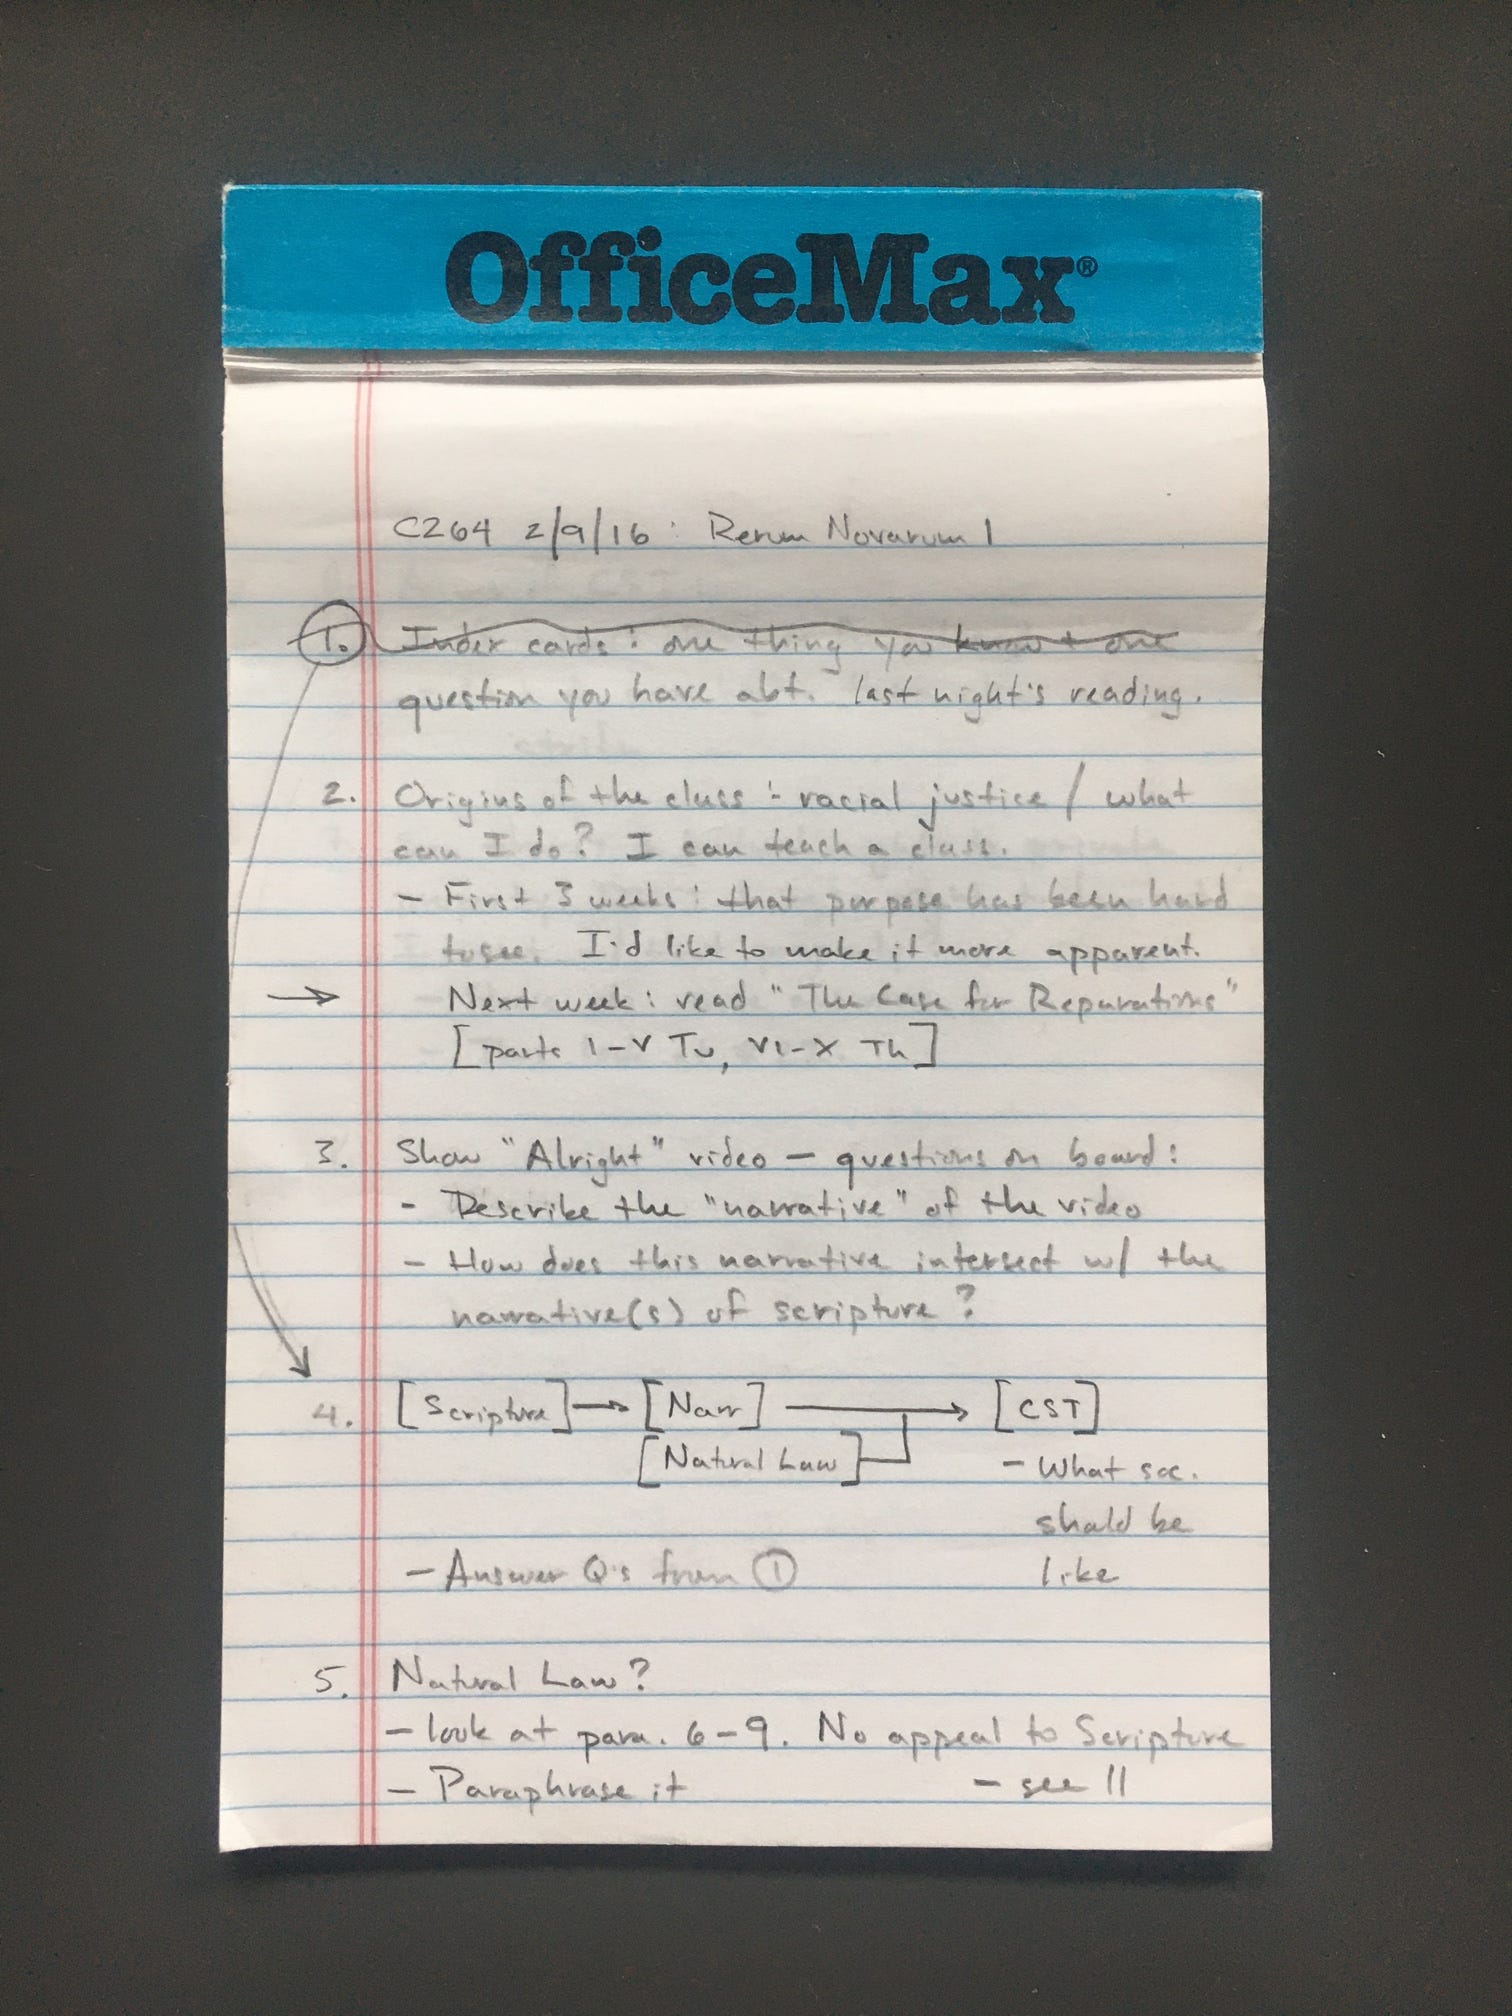 OfficeMax®
C264 2/9/16: Rerum Novarum 1
1. Index cards: one thing you know + one
question you have abt. last night's reading.
2. Origins of the class: racial justice / what
can I do? I can teach a class.
- First 3 weeks: that purpose has been hard
to see. I'd like to make it more apparent.
→ - Next week: read "The Case for Reparations"
[parts I-V Tu, VI-X Th]
3. Show "Alright" video - questions on board:
- Describe the "narrative" of the video
- How does this narrative intersect w/ the
narrative(s) of scripture?
4. [Scripture] → [Narr] → [CST]
[Natural Law] - What soc.
should be
- Answer Q's from ① like
5. Natural Law?
- look at para. 6-9. No appeal to Scripture
- Paraphrase it - see 11